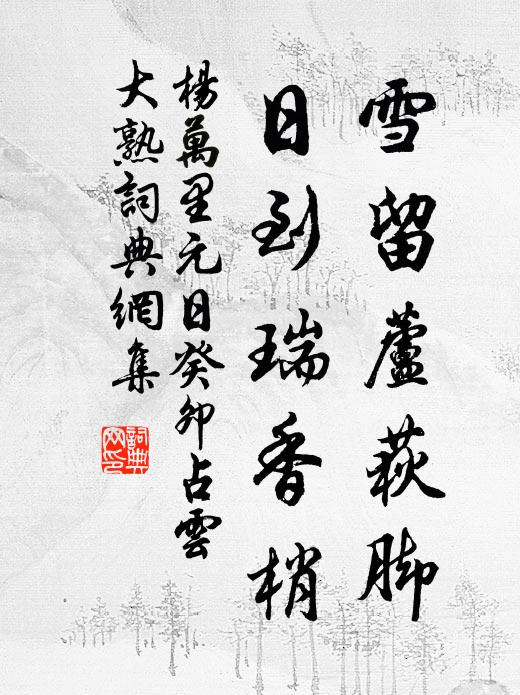 雪留蘆萩脚
日到瑞香梢
楊萬里元日癸卯占雲
大熟詞典網集
詞典
网印